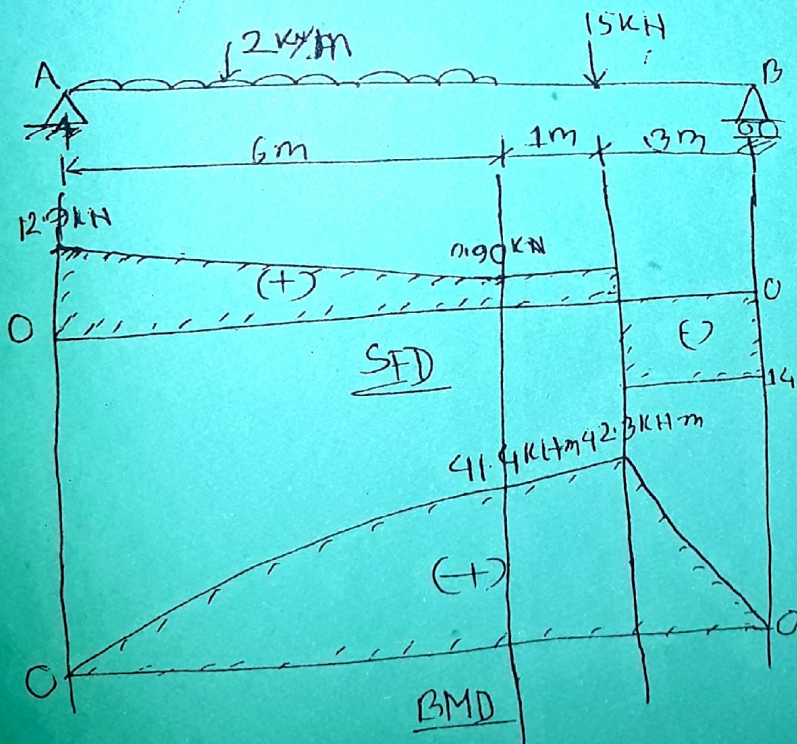 2 KN/m
15KN
A
B
6m
1m
3m
12.9KN
0.90 KN
(+)
0
0
(-)
SFD
14
41.4KNm
42.3KN-m
(+)
0
0
BMD